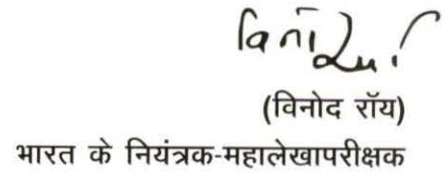 (विनोद रॉय)
भारत के नियंत्रक-महालेखापरीक्षक